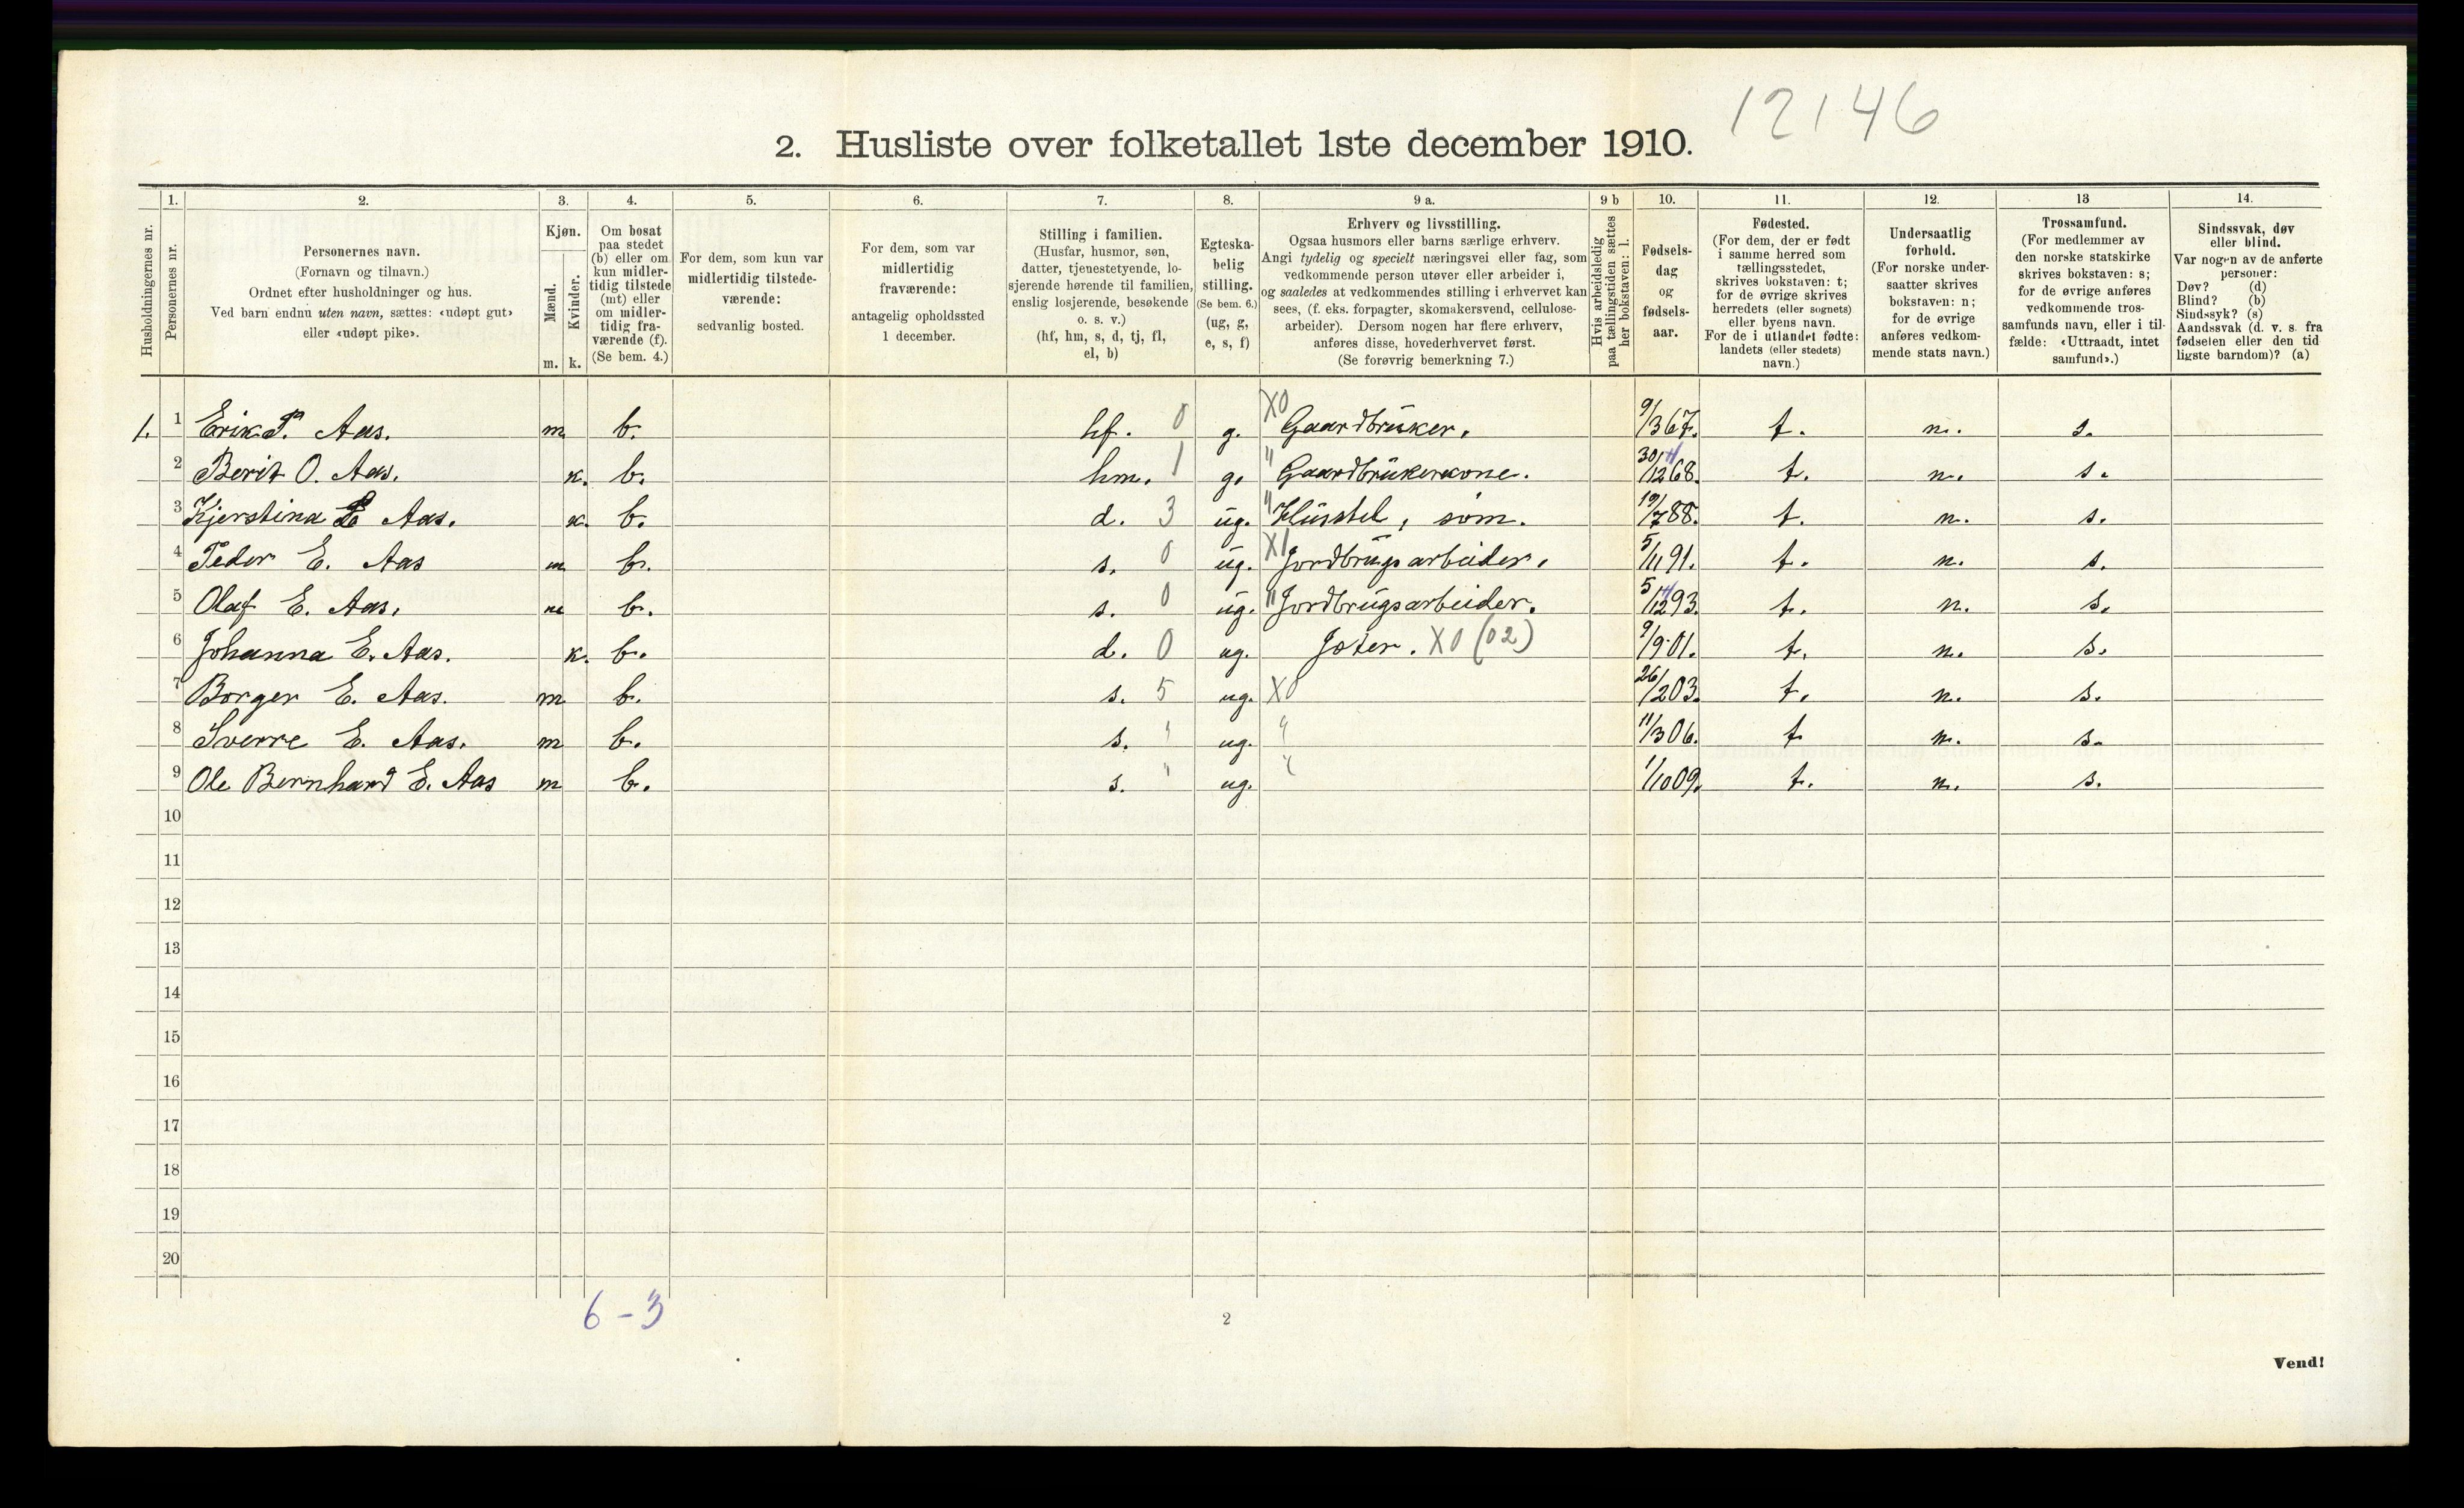 12146
2. Husliste over folketallet 1ste december 1910.
Husholdningernes nr.
1. Personernes nr.
2. Personernes navn.
(Fornavn og tilnavn.)
Ordnet efter husholdninger og hus.
Ved barn endnu uten navn, sættes: «udøpt gut»
eller «udøpt pike».
3. Kjøn.
Mænd. m.
Kvinder. k.
4. Om bosat
paa stedet
(b) eller om
kun midler-
tidig tilstede
(mt) eller
om midler-
tidig fra-
værende (f).
(Se bem. 4.)
5. For dem, som kun var
midlertidig tilstede-
værende:
sedvanlig bosted.
6. For dem, som var
midlertidig
fraværende:
antagelig opholdssted
1 december.
7. Stilling i familien.
(Husfar, husmor, søn,
datter, tjenestetyende, lo-
sjerende hørende til familien,
enslig losjerende, besøkende
o. s. v.)
(hf, hm, s, d, tj, fl,
el, b)
8. Egteska-
belig
stilling.
(Se bem. 6.)
(ug, g,
e, s, f)
9 a. Erhverv og livsstilling.
Ogsaa husmors eller barns særlige erhverv.
Angi tydelig og specielt næringsvei eller fag, som
vedkommende person utøver eller arbeider i,
og saaledes at vedkommendes stilling i erhvervet kan
sees, (f. eks. forpagter, skomakersvend, cellulose-
arbeider). Dersom nogen har flere erhverv,
anføres disse, hovederhvervet først.
(Se forøvrig bemerkning 7.)
9 b Hvis arbeidsledig
paa tællingstiden sættes
her bokstaven: l.
10. Fødsels-
dag
og
fødsels-
aar.
11. Fødested.
(For dem, der er født
i samme herred som
tællingsstedet,
skrives bokstaven: t;
for de øvrige skrives
herredets (eller sognets)
eller byens navn.
For de i utlandet fødte:
landets (eller stedets)
navn.)
12. Undersaatlig
forhold.
(For norske under-
saatter skrives
bokstaven: n;
for de øvrige
anføres vedkom-
mende stats navn.)
13 Trossamfund.
(For medlemmer av
den norske statskirke
skrives bokstaven: s;
for de øvrige anføres
vedkommende tros-
samfunds navn, eller i til-
fælde: «Uttraadt, intet
samfund».)
14. Sindssvak, døv
eller blind.
Var nogen av de anførte
personer:
Døv? (d)
Blind? (b)
Sindssyk? (s)
Aandssvak (d. v. s. fra
fødselen eller den tid
ligste barndom)? (a)
1. 1 Erik P. Aas. m b. hf. 0 g. X0 Gaardbruker. 9/3 67. t. n. s.
2 Berit O. Aas. k. b. hm. 1 g. " Gaardbrukerkone. 30/12 68. t. n. s.
3 Kjerstina E Aas. k. b. d. 3 ug. " Husstel, søm. 19/7 88. t. n. s.
4 Peder E. Aas m b. s. 0 ug. X1 Jordbrugsarbeider. 5/11 91. t. n. s.
5 Olaf E. Aas. m b. s. 0 ug. " Jordbrugsarbeider. 5/12 93. t. n. s.
6 Johanna E. Aas. k. b. d. 0 ug. Jøter. X0 (02) 9/9 01. t. n. s.
7 Borger E. Aas. m b. s. 5 ug. X0 26/2 03. t. n. s.
8 Sverre E. Aas. m b. s. " ug. " 11/3 06. t n. s.
9 Ole Bernhard E. Aas m b. s. " ug. " 1/10 09. t. n. s.
10
11
12
13
14
15
16
17
18
19
20
6-3
2
Vend!